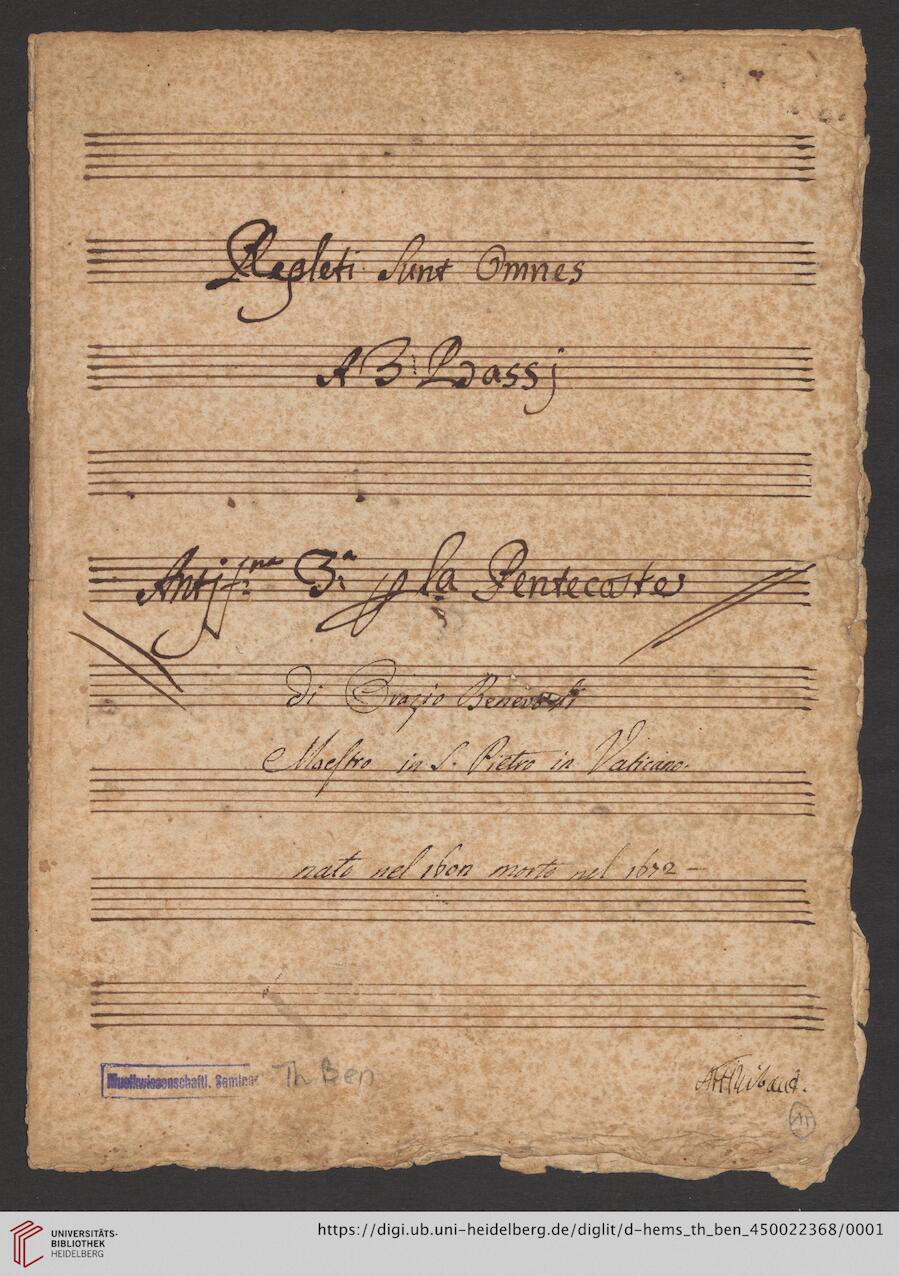 Repleti Sunt Omnes
A 3 Bassj
Antjf.na 3.a p la Pentecoste
di Orazio Benevoli
Maestro in S. Pietro in Vaticano.
nato nel 1602 morto nel 1672 –
Musikwissenschaftl. Seminar
Th Ben
AFThibaut.
11
UNIVERSITÄTS-
BIBLIOTHEK
HEIDELBERG
https://digi.ub.uni-heidelberg.de/diglit/d-hems_th_ben_450022368/0001